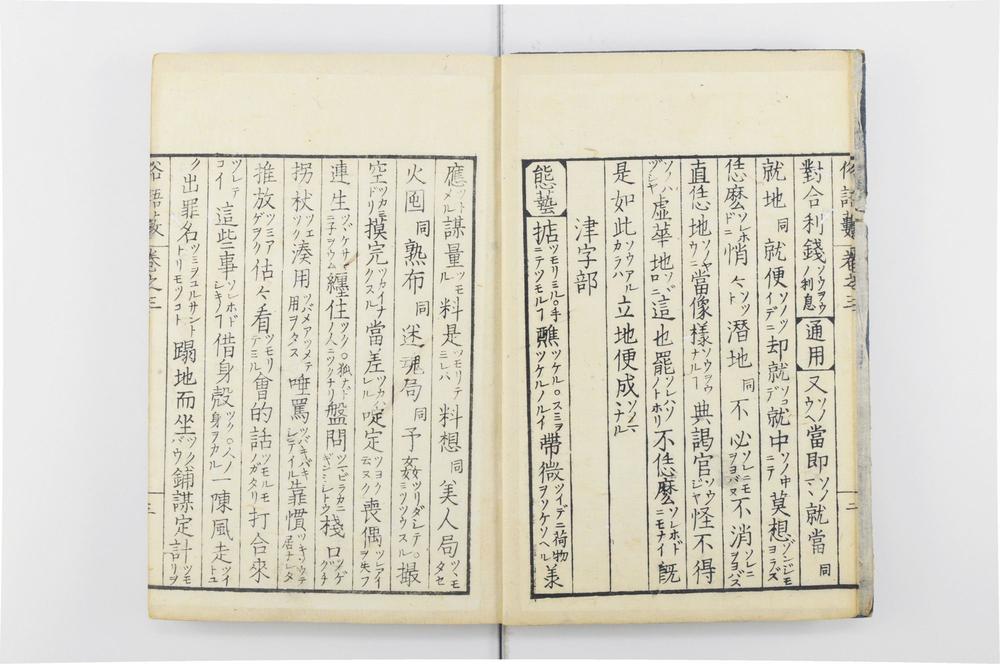 俗語藪 卷之三
對合利錢ソウヲウノ利息 通用 又ソノウヘ當即ソノマヽ就當同
就地同就便ソノツイデニ却就ソコデ就中ソノ中ニテ莫想ゾンジモヨラズ
恁麼ソレホドニ悄々ソット潛地同不必ソレニモヲヨバヌ不消ソレニヲヨバズ
直恁地ソノヤウニ當像樣ソウヲウナル典謁官ソウジヤ怪不得
ソノハヅジヤ虚華地ソバロニ這也罷ソレハソノトホリ不恁麼ソレホドニモナイ既
是如此ソウアルカラハ立地便成ソノ
津字部
態藝 掂ツモリミル○手ニテツモルヿ醮ツケル○スミヲツケルノルイ帶微ツイデニ荷物ヲソケソヘル羕
應ツトメル謀量ツモル料是ツモリテミレハ料想同美人局ツヽモタセ
火囤同熟布同迷魂局同予姦ツリダシテ○ミツウスル撮
空ツカミドリ摸完ツカイナクスル當差ツカハレル啶定ツヨク云ヌク喪偶ツレアイヲ失フ
連生ツヾケサマニ子ヲウム纏住ツク○狐ナドノ人ニツクナリ盤問ツマビラカニギンミシトウ棧口ツゲグチ
拐杖ツエ湊用ツバメアツメテ用ヲタス唾罵ツバキバキシテイル靠慣ツキソウテ居ナレタ
推放ツミアゲヲク估々看ツモリテミル會的話ツモルモノガタリ打合來
ツレテコイ這些事ソレホドシキノヿ借身殼ツク○人ノ身ヲカル一陳風走ツイトユ
ク出罪名ツミヲユルサントトリモツコト蹋地而坐ツクバウ鋪謀定計ツモ計リヲ
俗語藪 卷之三 三